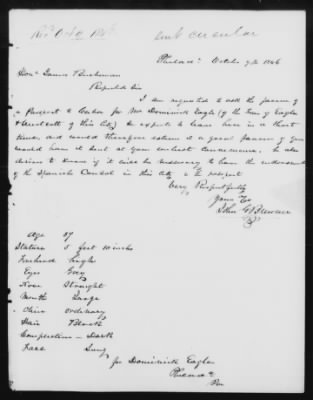 Recd Oct 10 1846
sent circular
Philada: October 9th 1846
Honble James Buchanan
Respected Sir
I am requested to ask the favour of
a Passport to Cuba for Mr Dominick Eagle (of the firm of Eagle
& of this City) he expects to leave here in a short
time, and would therefore esteem it a great favour if you
would have it sent at your earliest convenience. he also
desires to know if it will be necessary to have the endorsement
of the Spanish Consul in this City to the passport
Very Respectfully
Yours &c
John G Brenner
Age 37
Stature 5 feet 10 inches
Forehead High
Eyes Grey
Nose Straight
Mouth Large
Chin ordinary
Hair Black
Complexion - Dark
Face Long
for Dominick Eagle
Philada
Pa